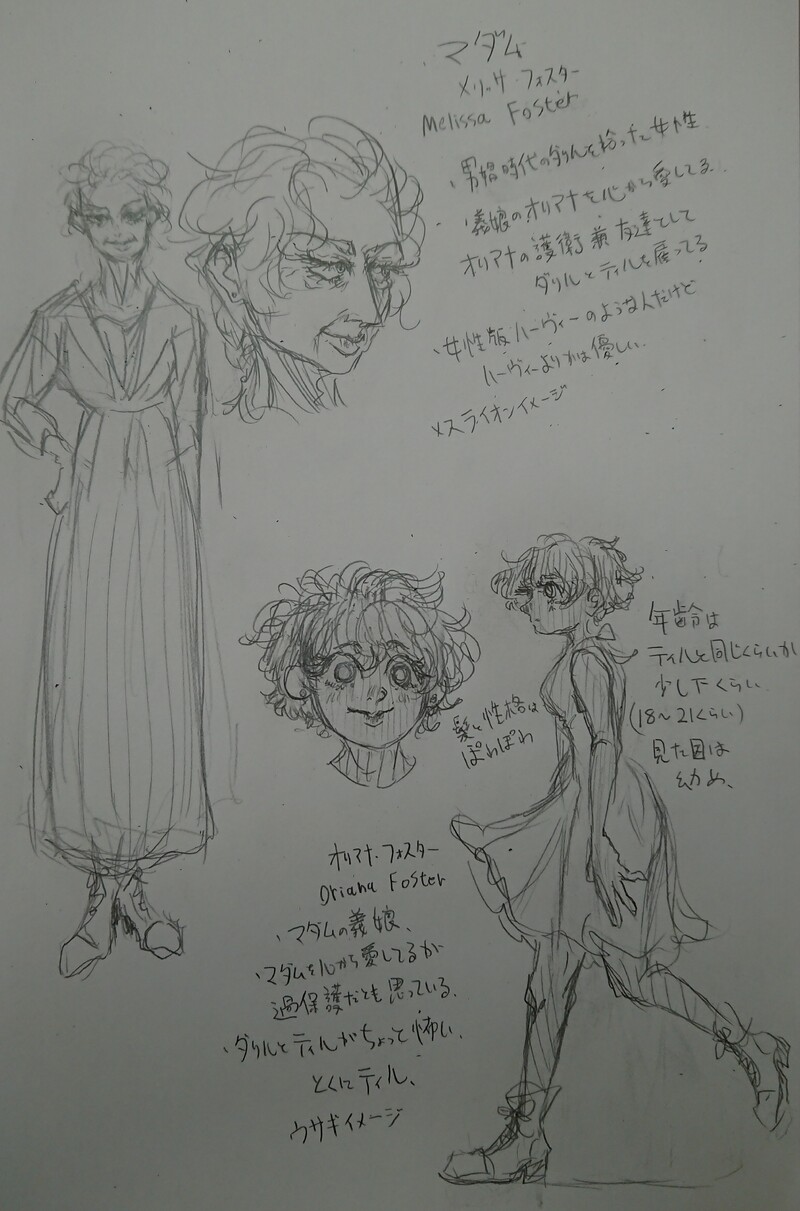 マダム
メリッサ フォスター
Melissa Foster
、男娼時代のダリルを拾った女性
、義娘のオリアナを心から愛してる
オリアナの護衛兼友達として
ダリルとティルを雇ってる
、女性版ハーヴィーのような人だけど
ハーヴィーよりかは優しい.
メスライオンイメージ
年齢は
ティルと同じくらいか
少し下くらい
(18〜21くらい)
見た目は
幼め、
髪と性格は
ぽわぽわ
オリアナ・フォスター
Oriana Foster
、マダムの義娘、
、マダムを心から愛してるが
過保護だとも思っている.
、ダリルとティルがちょっと怖い、
とくにティル、
ウサギイメージ